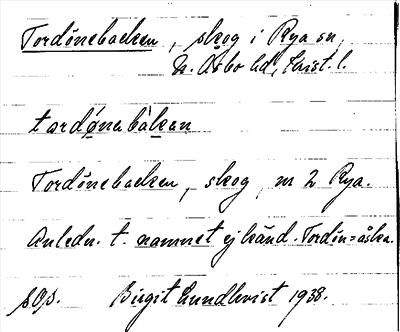 Tordönebacken, skog i Rya sn,
N. Åsbo hd, Krist. l.
tɷrdø̀nebàkən
Tordönebacken, skog, nr 2 Rya.
Anledn. t. namnet ej känd. Tordön = åska.
Birgit Lundkvist 1938.